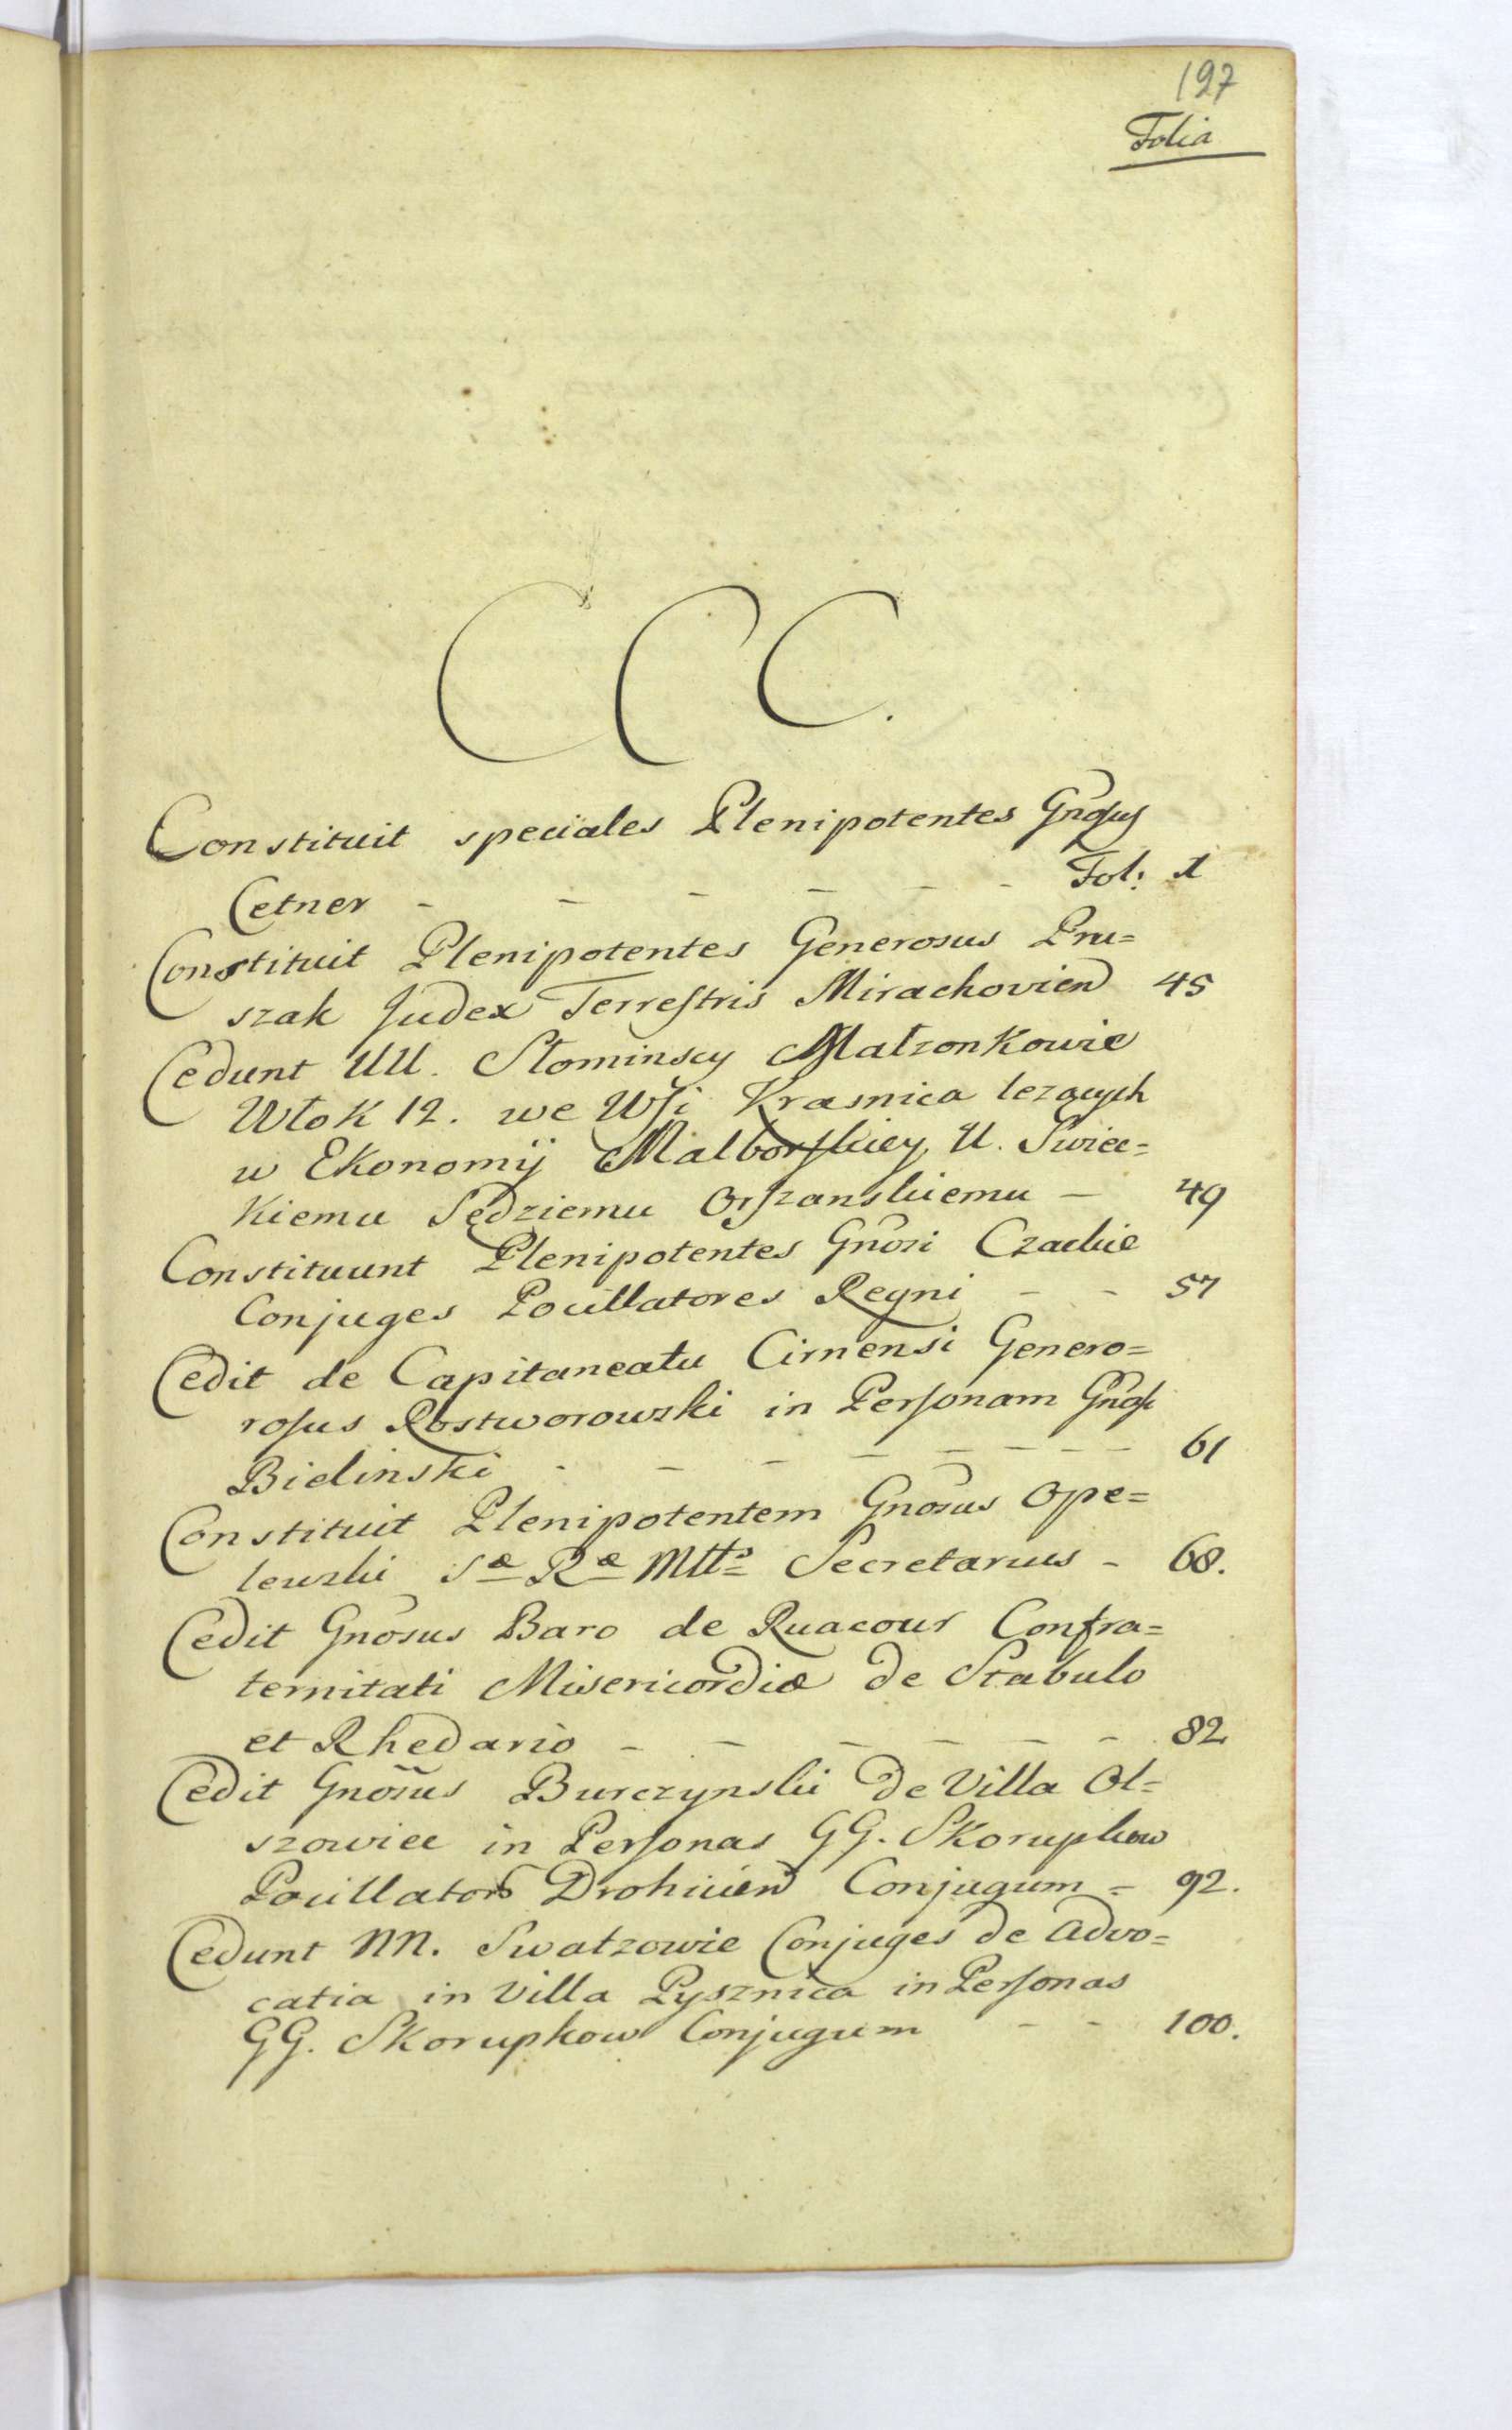 197
Folia
CCC.
Constituit speciales Plenipotentes Gnosus
Cetner - - - - - - Fol: 1
Constituit Plenipotentes Generosus Pru=
szak Judex Terrestris Mirachovien 45
Cedunt UU. Słominscy Małzonkowie
Włok 12. we Wsi Krasnica lezących
w Ekonomij Malborskiey, U. Swiec=
kiemu Sędziemu Orszanskiemu - 49
Constituunt Plenipotentes Gnosi Czackie
Conjuges Pocillatores Regni - - 57
Cedit de Capitaneatu Cirnensi Genero=
rosus Rostworowski in Personam Gnosi
Bielinski - - - - - - - 61
Constituit Plenipotentem Gnosus Ope=
lewski Sæ Ræ Mtts Secretarius - 68.
Cedit Gnosus Baro de Ruacour Confra=
ternitati Misericordiæ de Stabulo
et Rhedario - - - - - - 82
Cedit Gnosus Burczynski de Villa Ol=
szowiec in Personas GG. Skorupkow
Pocillators Drohicien Conjugum = 92.
Cedunt NN. Swatzowie Conjuges de Advo=
catia in Villa Pysznica in Personas
GG. Skorupkow Conjugum - - 100.